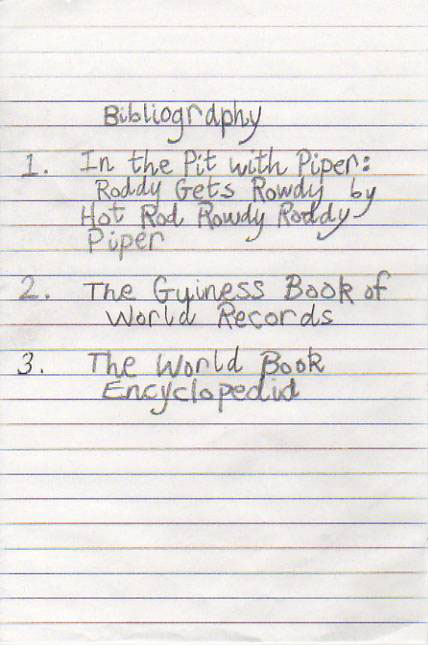 Bibliography
1. In the Pit with Piper:
Roddy Gets Rowdy by
Hot Rod Rowdy Roddy
Piper
2. The Gyiness Book of
World Records
3. The World Book
Encyclopedia